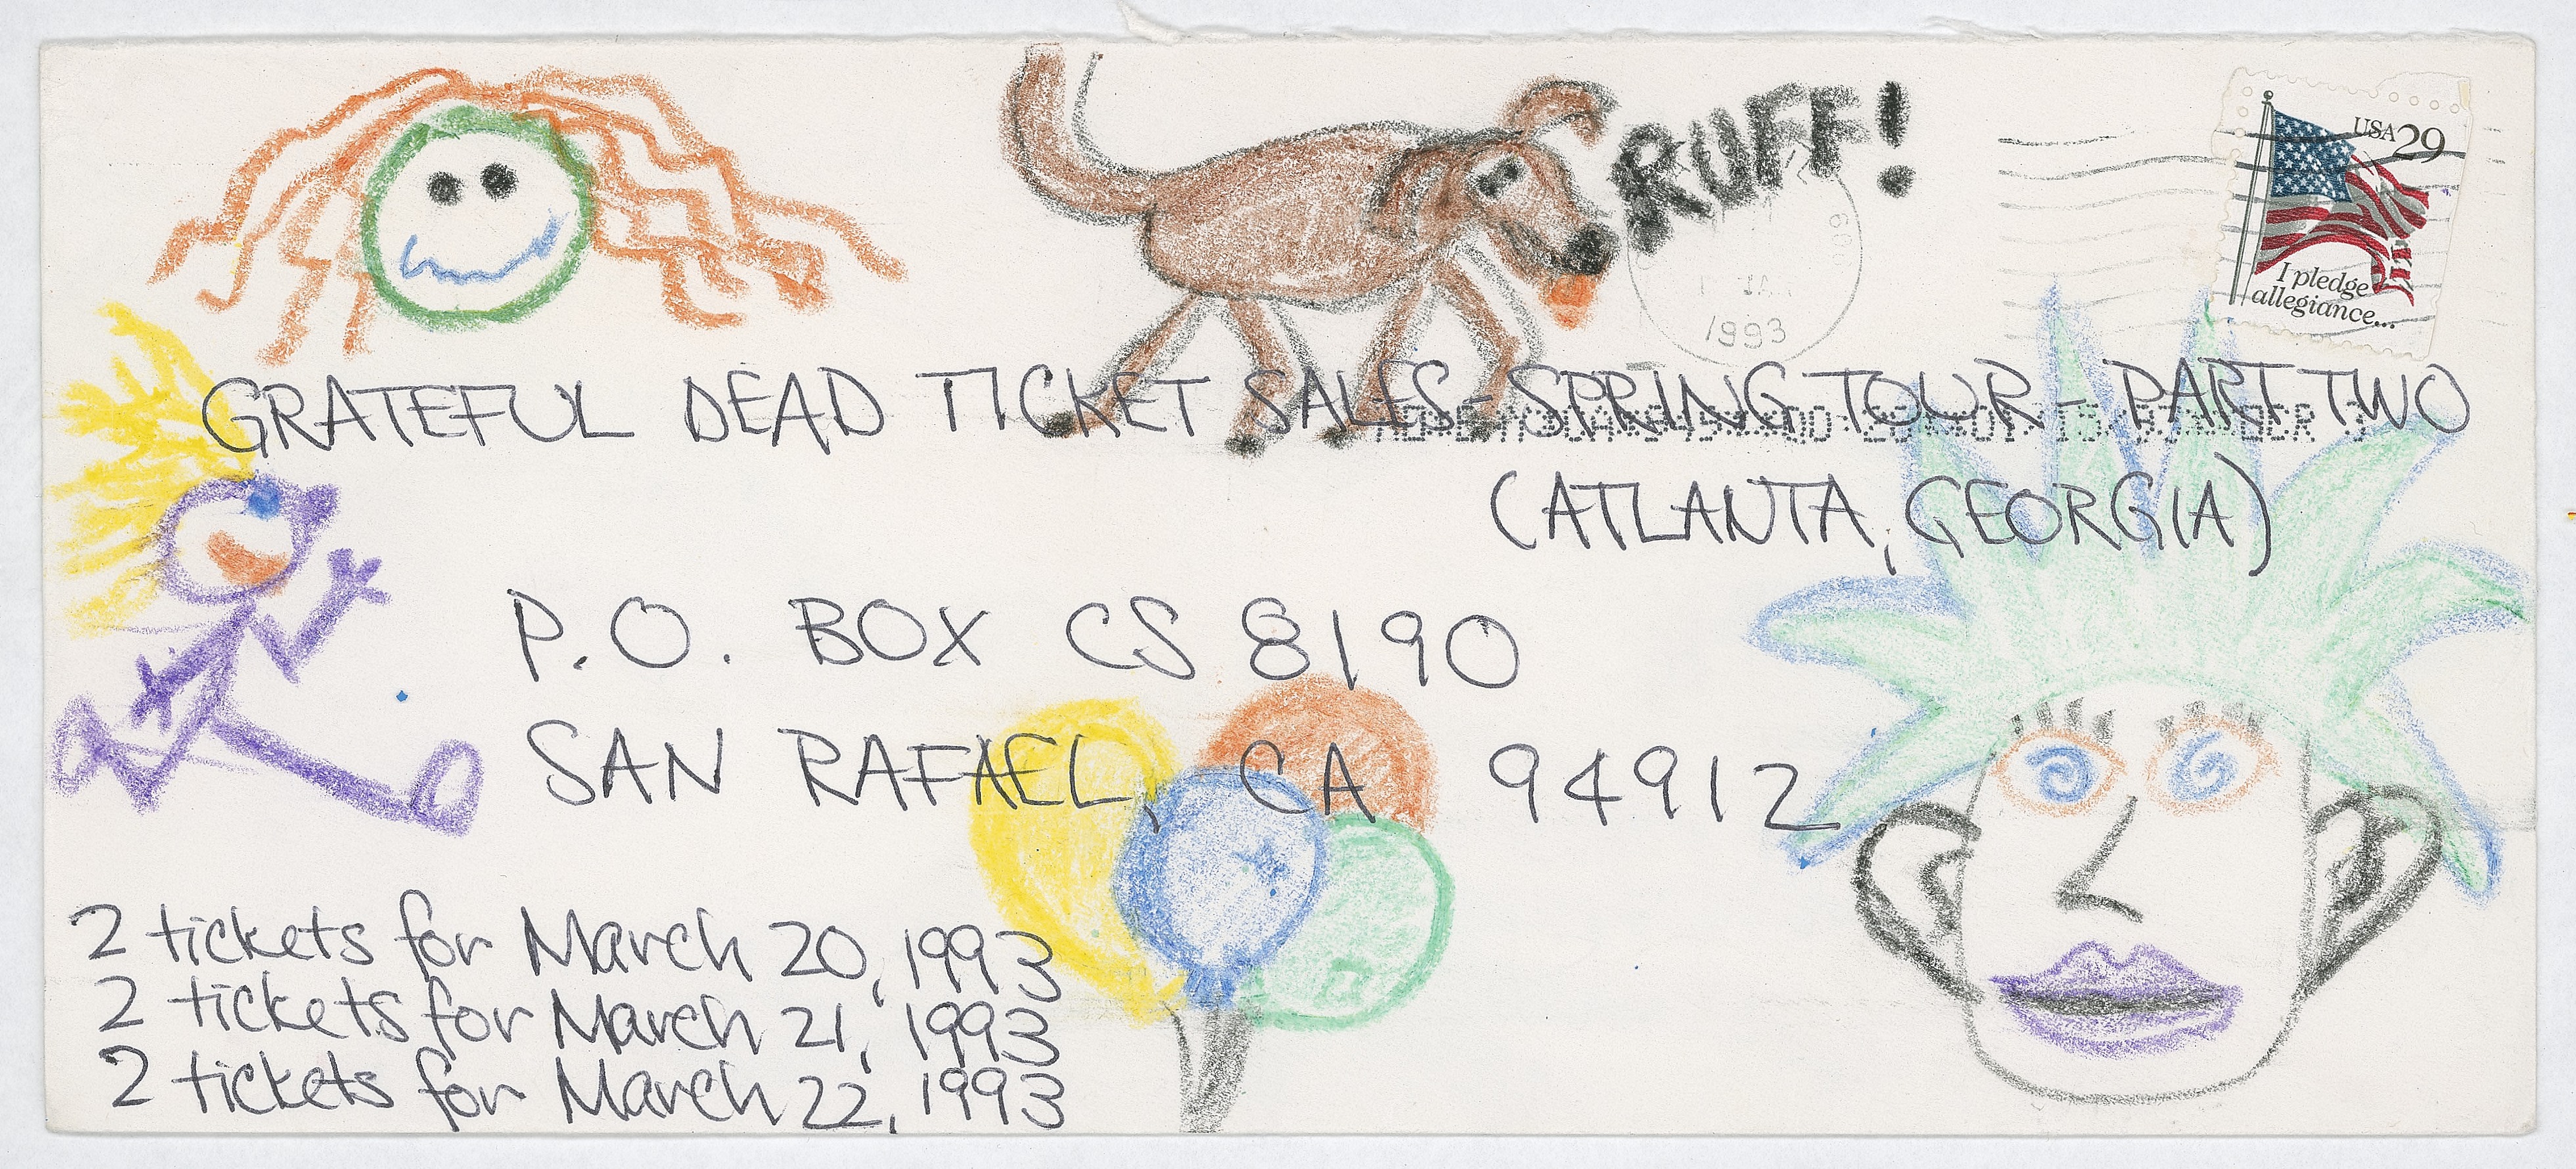 RUFF!
USA 29
I pledge
allegiance...
1993
GRATEFUL DEAD TICKET SALES - SPRING TOUR - PART TWO
(ATLANTA, GEORGIA)
P.O. BOX CS 8190
SAN RAFAEL, CA 94912
2 tickets for March 20, 1993
2 tickets for March 21, 1993
2 tickets for March 22, 1993